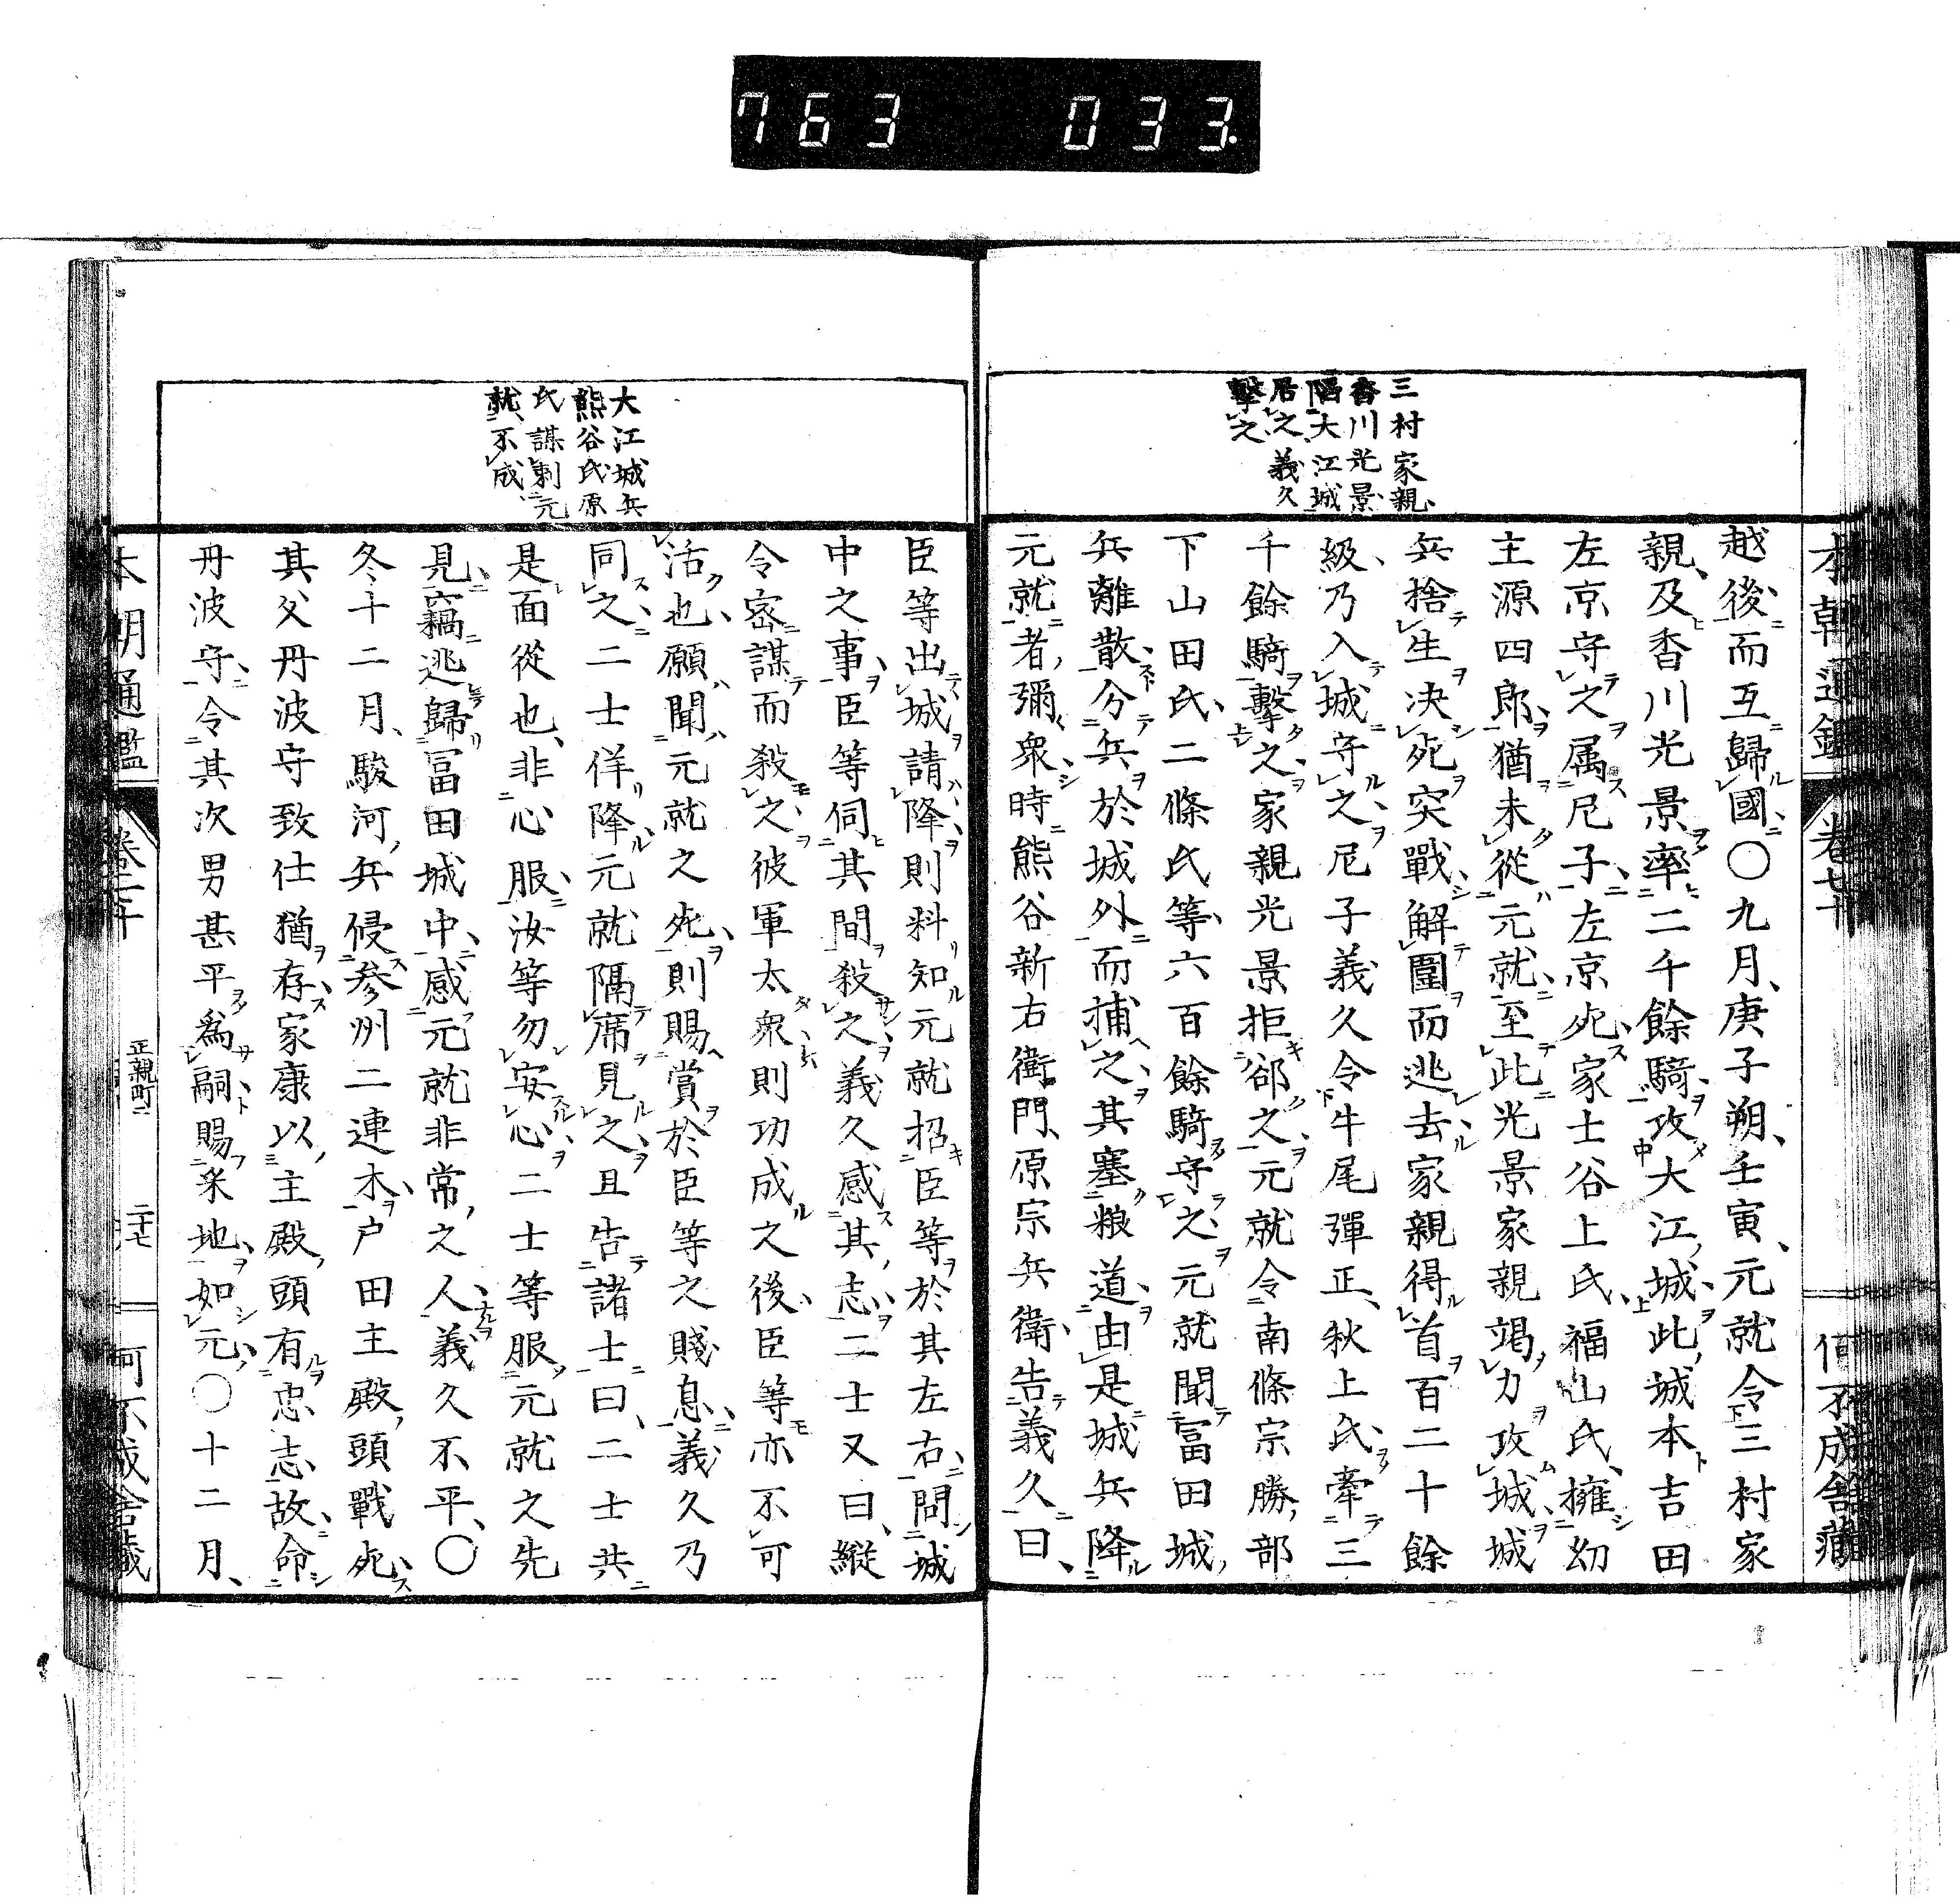 763 033.
本朝通鑑 卷七十 何不成舎藏
三村家親、
香川光景
陷大江城
居之、義久
擊之、
越後而互歸國、〇九月、庚子朔、壬寅、元就令三村家
親、及香川光景率二千餘騎、攻大江城、此城本吉田
左京守之属尼子、左京死、家士谷上氏、福山氏、擁幼
主源四郎、猶未從元就、至此光景家親竭力攻城、城
兵捨生决死突戰、解圍而逃去、家親得首百二十餘
級、乃入城守之、尼子義久令牛尾彈正、秋上氏、牽三
千餘騎擊之、家親光景拒郤之、元就令南條宗勝、部
下山田氏、二條氏等、六百餘騎守之、元就聞冨田城
兵離散、分兵於城外而捕之、其塞粮道、由是城兵降
元就者、彌衆、時熊谷新右衛門、原宗兵衛、告義久曰、
大江城兵
熊谷氏原
氏謀剌元
就、不成、
臣等出城請降、則料知元就招臣等於其左右、問城
中之事、臣等伺其間殺之、義久感其志、二士又曰、縱
令密謀而殺之、彼軍太衆、則功成之後、臣等亦不可
活也、願聞元就之死、則賜賞於臣等之賤息、義久乃
同之、二士佯降、元就隔席見之、且告諸士曰、二士共
是面從也、非心服、汝等勿安心、二士等服元就之先
見、竊逃歸冨田城中、感元就非常之人、義久不平、〇
冬十二月、駿河兵侵參州二連木、户田主殿頭戰死、
其父丹波守致仕猶存、家康以主殿頭有忠志、故命
丹波守、令其次男甚平爲嗣、賜釆地、如元、〇十二月、
本朝通鑑 卷七十 正親町二 二十七 何不成舎藏